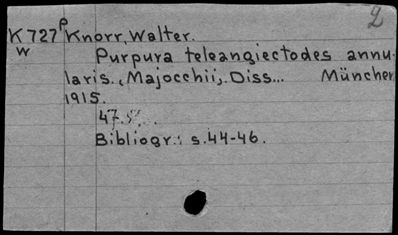 2
K727p Knorr, Walter.
w
Purpura teleangiectodes annu-
laris., Majocchii, Diss... München
1915.
47.
Bibliogr.: s.44-46.